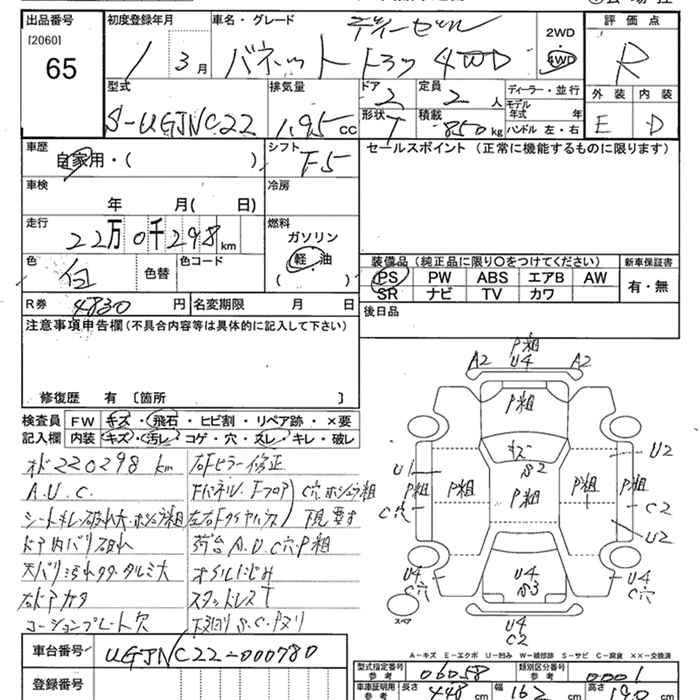 出品番号
[2060]
65
初度登録年月
1 3月
車名・グレード
ディーゼル
バネット トラック 4WD
2WD
4WD
評価点
R
型式
S-UGJNC22
排気量
1.95 cc
ドア
2
定員
2 人
形状
T
積載
850 kg
ディーラー・並行
モデル年式 年
ハンドル 左・右
外装
E
内装
D
車歴
自家用・( )
シフト
F5
セールスポイント (正常に機能するものに限ります)
車検
年 月( 日)
冷房
走行
22万0千298km
燃料
ガソリン
軽・油
( )
色
白
色替
色コード
装備品 (純正品に限り○をつけてください)
PS PW ABS エアB AW
SR ナビ TV カワ
新車保証書
有・無
R券
4830 円
名変期限 月 日
後日品
注意事項申告欄 (不具合内容等は具体的に記入して下さい)
修復歴 有 〔箇所 〕
検査員
記入欄
FW キズ・飛石・ヒビ割・リペア跡・×要
内装 キズ・汚レ・コゲ・穴・スレ・キレ・破レ
オド220298km
A.U.C.
ドア内バリ破れ
天バリ汚れタタ・タルミ大
右ドアガタ
コーションプレート欠
右Fピラー修正
下見要す
荷台A.U.C穴.P粗
オイルにじみ
スタットレスT
下回りS.C.Pヌリ
A2 U4 P粗 A2
P粗
キズ
S2
U1 P粗 P粗 P粗 P粗 P粗 U2
C穴 C2
U2
U4 C穴 U4 S3 U4 C穴
スペア
U4
C2
A-キズ E-エクボ U-凹み W-補修跡 S-サビ C-腐食 ××-交換済
車台番号
UGJNC22-000780
登録番号
型式指定番号
参考
06058
類別区分番号
参考
0001
車庫証明用
参考
長さ 448 cm 幅 162 cm 高さ 190 cm